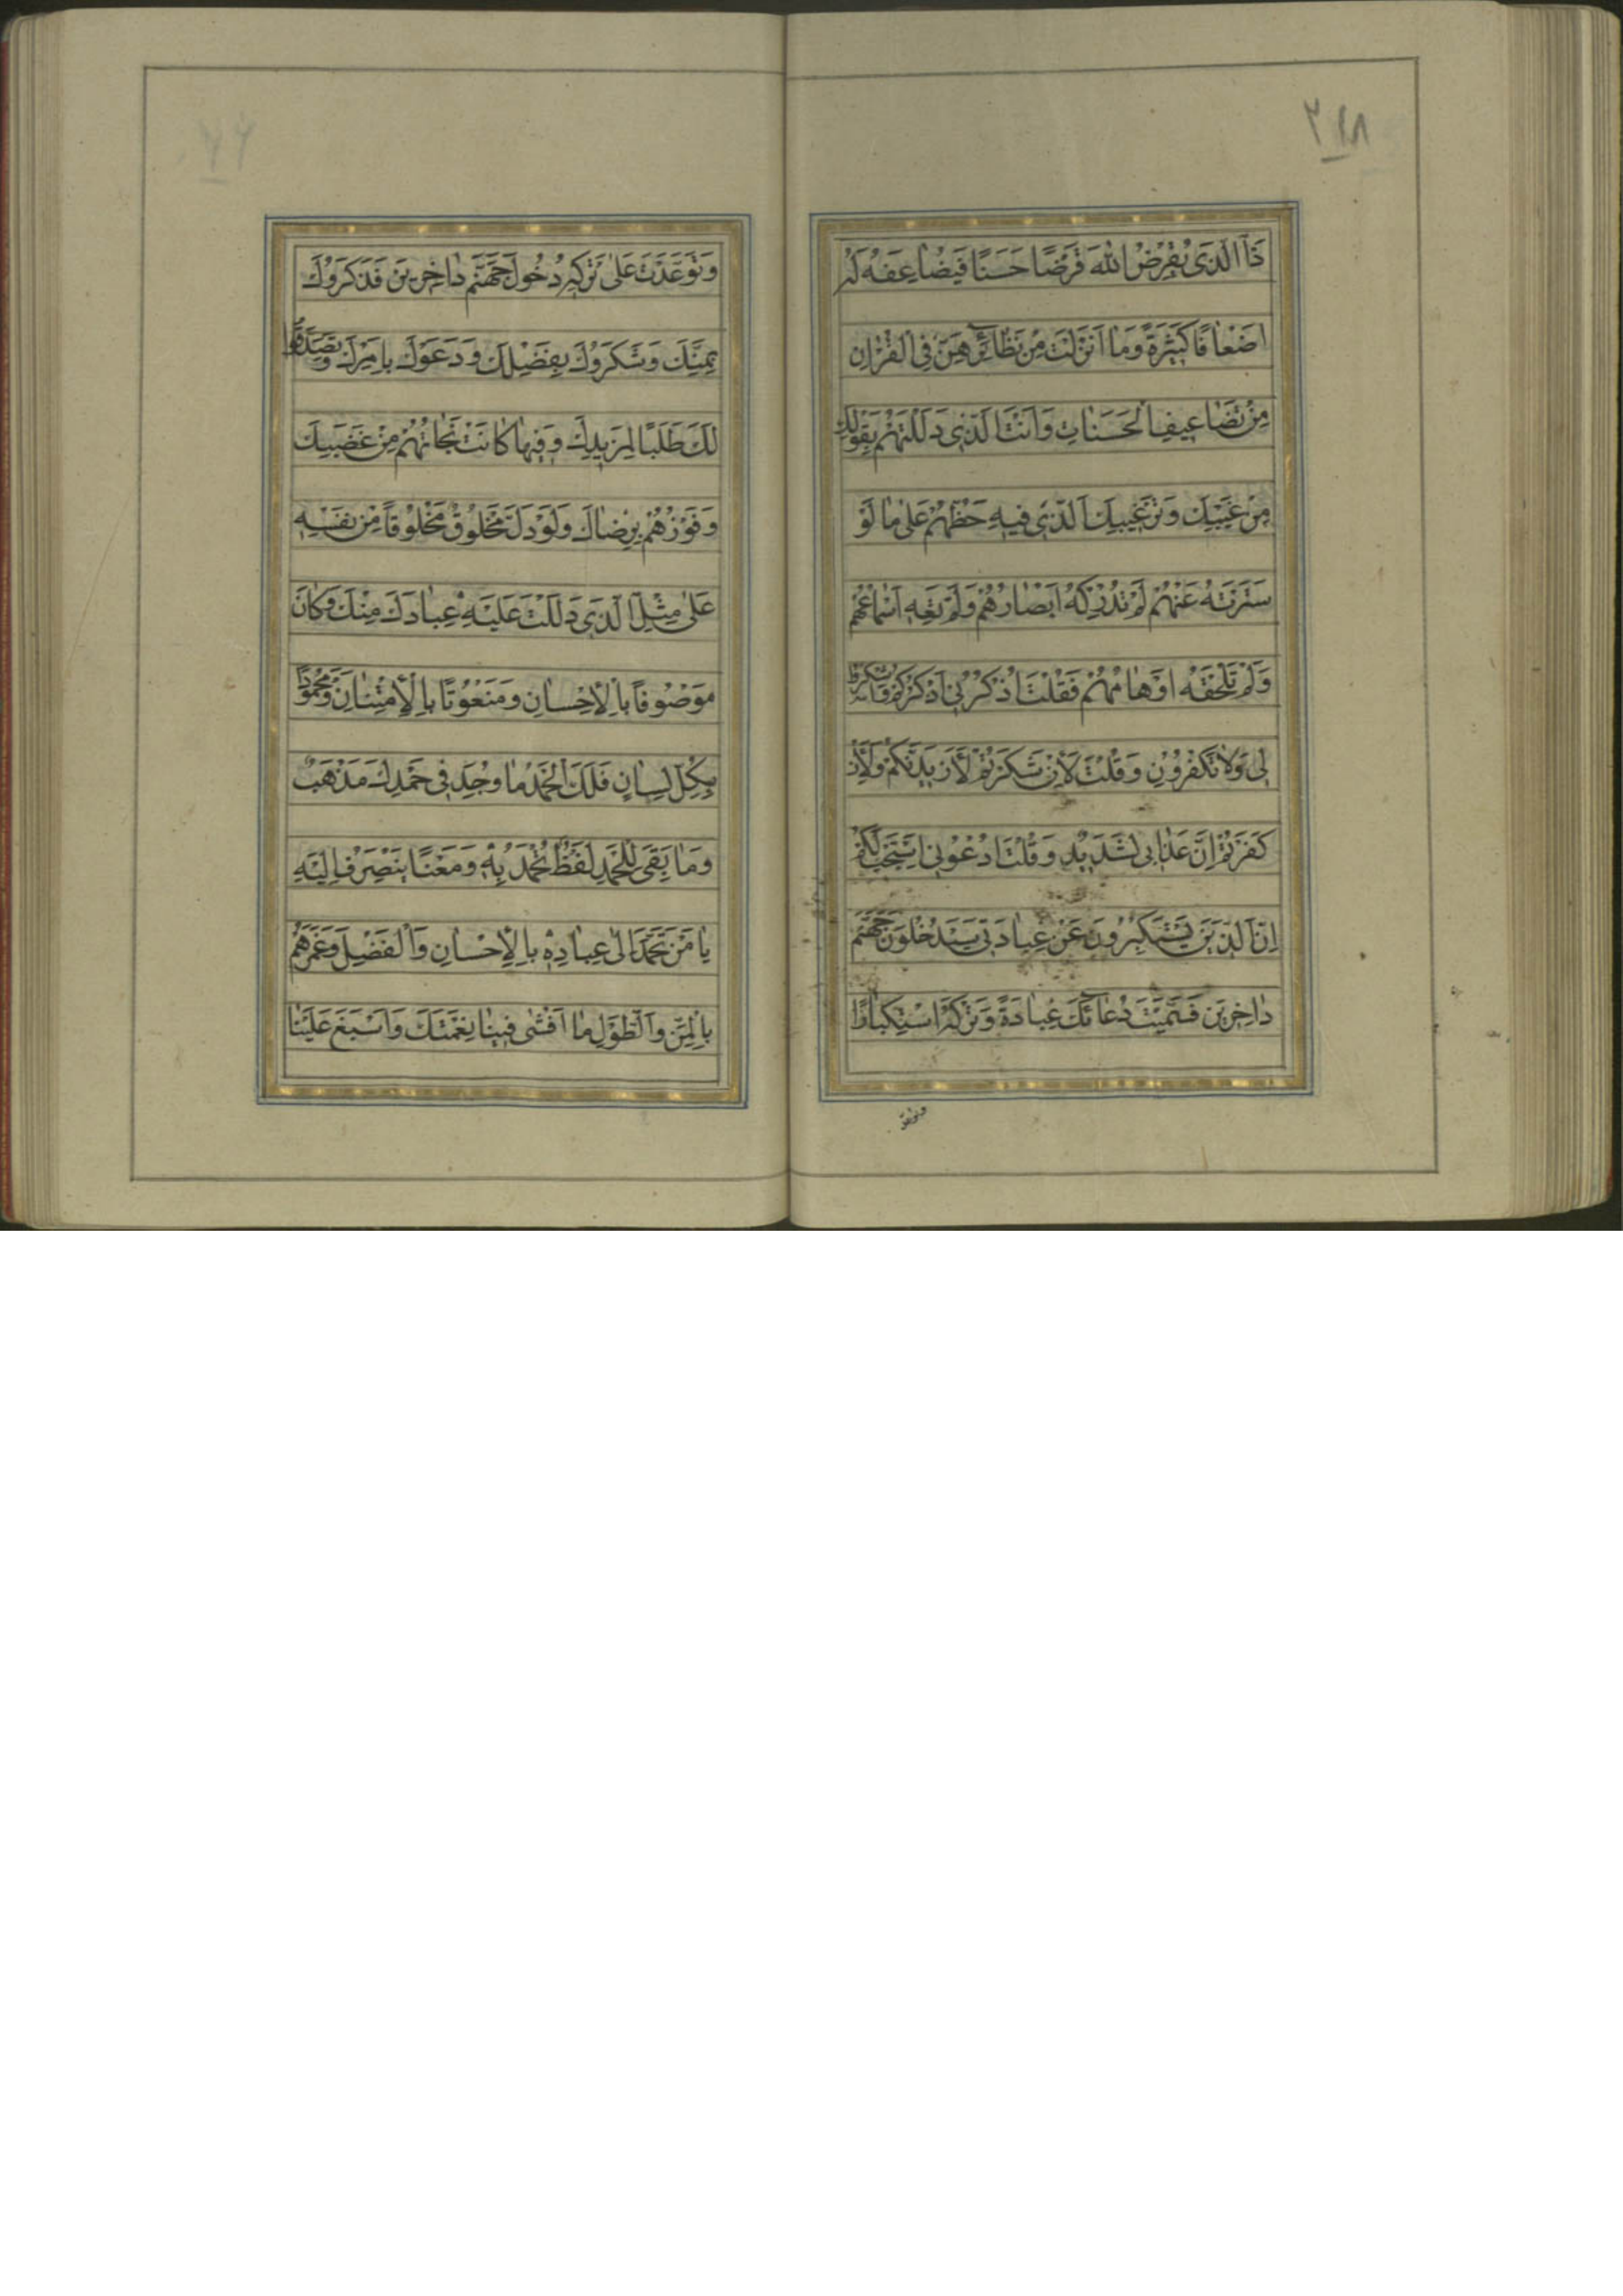 ٢٤٨
ذَا الَّذِي يُقْرِضُ اللّٰهَ قَرْضًا حَسَنًا فَيُضَاعِفَهُ لَهُ
اَضْعَافًا كَثِيرَةً وَمَا اَنْزَلْتَ مِنْ نَظَائِرِهِنَّ فِي الْقُرْاٰنِ
مِنْ تَضَاعِيفِ الْحَسَنَاتِ وَاَنْتَ الَّذِي دَلَلْتَهُمْ بِقَوْلِكَ
مِنْ غَيْبِكَ وَتَرْغِيبِكَ الَّذِي فِيهِ حَظُّهُمْ عَلَى مَا لَوْ
سَتَرْتَهُ عَنْهُمْ لَمْ تُدْرِكْهُ اَبْصَارُهُمْ وَلَمْ تَعِهِ اَسْمَاعُهُمْ
وَلَمْ تَلْحَقْهُ اَوْهَامُهُمْ فَقُلْتَ اذْكُرُونِي اَذْكُرْكُمْ وَاشْكُرُوا
لِي وَلَا تَكْفُرُونِ وَقُلْتَ لَاِنْ شَكَرْتُمْ لَاَزِيدَنَّكُمْ وَلَاِنْ
كَفَرْتُمْ اِنَّ عَذَابِي لَشَدِيدٌ وَقُلْتَ ادْعُونِي اَسْتَجِبْ لَكُمْ
اِنَّ الَّذِينَ يَسْتَكْبِرُونَ عَنْ عِبَادَتِي سَيَدْخُلُونَ جَهَنَّمَ
دَاخِرِينَ فَسَمَّيْتَ دُعَائَكَ عِبَادَةً وَتَرْكَهُ اسْتِكْبَارًا
وَتَوَعَّدْتَ عَلَى تَرْكِهِ دُخُولَ جَهَنَّمَ دَاخِرِينَ فَذَكَرُوكَ
بِمَنِّكَ وَشَكَرُوكَ بِفَضْلِكَ وَدَعَوْكَ بِاَمْرِكَ وَتَصَدَّقُوا
لَكَ طَلَبًا لِمَزِيدِكَ وَفِيهَا كَانَتْ نَجَاتُهُمْ مِنْ غَضَبِكَ
وَفَوْزُهُمْ بِرِضَاكَ وَلَوْ دَلَّ مَخْلُوقٌ مَخْلُوقًا مِنْ نَفْسِهِ
عَلَى مِثْلِ الَّذِي دَلَلْتَ عَلَيْهِ عِبَادَكَ مِنْكَ وَكَانَ
مَوْصُوفًا بِالْاِحْسَانِ وَمَنْعُوتًا بِالْاِمْتِنَانِ وَمَحْمُودًا
بِكُلِّ لِسَانٍ فَلَكَ الْحَمْدُ مَا وُجِدَ فِي حَمْدِكَ مَذْهَبٌ
وَمَا بَقِيَ لِلْحَمْدِ لَفْظٌ تُحْمَدُ بِهِ وَمَعْنًا يَنْصَرِفُ اِلَيْهِ
يَا مَنْ تَحَمَّدَ اِلَى عِبَادِهِ بِالْاِحْسَانِ وَالْفَضْلِ وَغَمَرَهُمْ
بِالْمَنِّ وَالطَّوْلِ مَا اَفْشَى فِينَا نِعْمَتَكَ وَاَسْبَغَ عَلَيْنَا